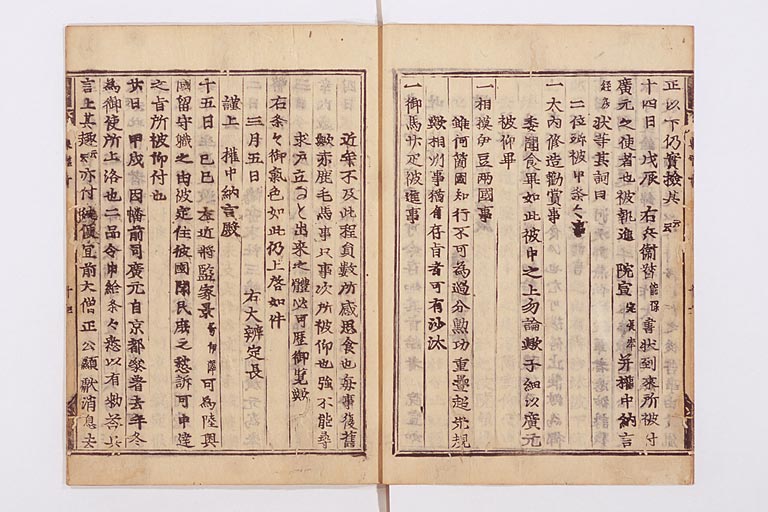 正以下仍實撿共云云
十四日 戊辰 右兵衞督能保書狀到來所被付
廣元之使者也被執進 院宣 并權中納言
經房狀等其詞曰
二位殿被申条々事
一大內修造勤賞事
委聞食畢如此被申之上勿論歟子細以廣元
被仰畢
一相摸伊豆兩國事
雖何箇國知行不可為過分勲功重疊超常規
歟相別事猶有存旨者可有沙汰
一御馬廿疋被進事
近年不及此程員數所感思食也每事復舊
歟亦鹿毛馬事只事次所被仰也強不能尋
求戸立なと出来之體以可歴御覽歟
右条々御氣色如此仍上啓如件
三月五日 右大辨定長
謹上 權中納言殿
十五日 己巳 左近將監家景号伊澤可為陸奥
國留守職之由被定住彼國聞民庶之愁訴可申達
之旨所被仰付也
廿日 甲戌 因幡前司廣元自京都參著去年冬
為御使所上洛也二品令申給条々悉以有勅答之
言上其趣云云亦付便宜前大僧正公顯獻消息去